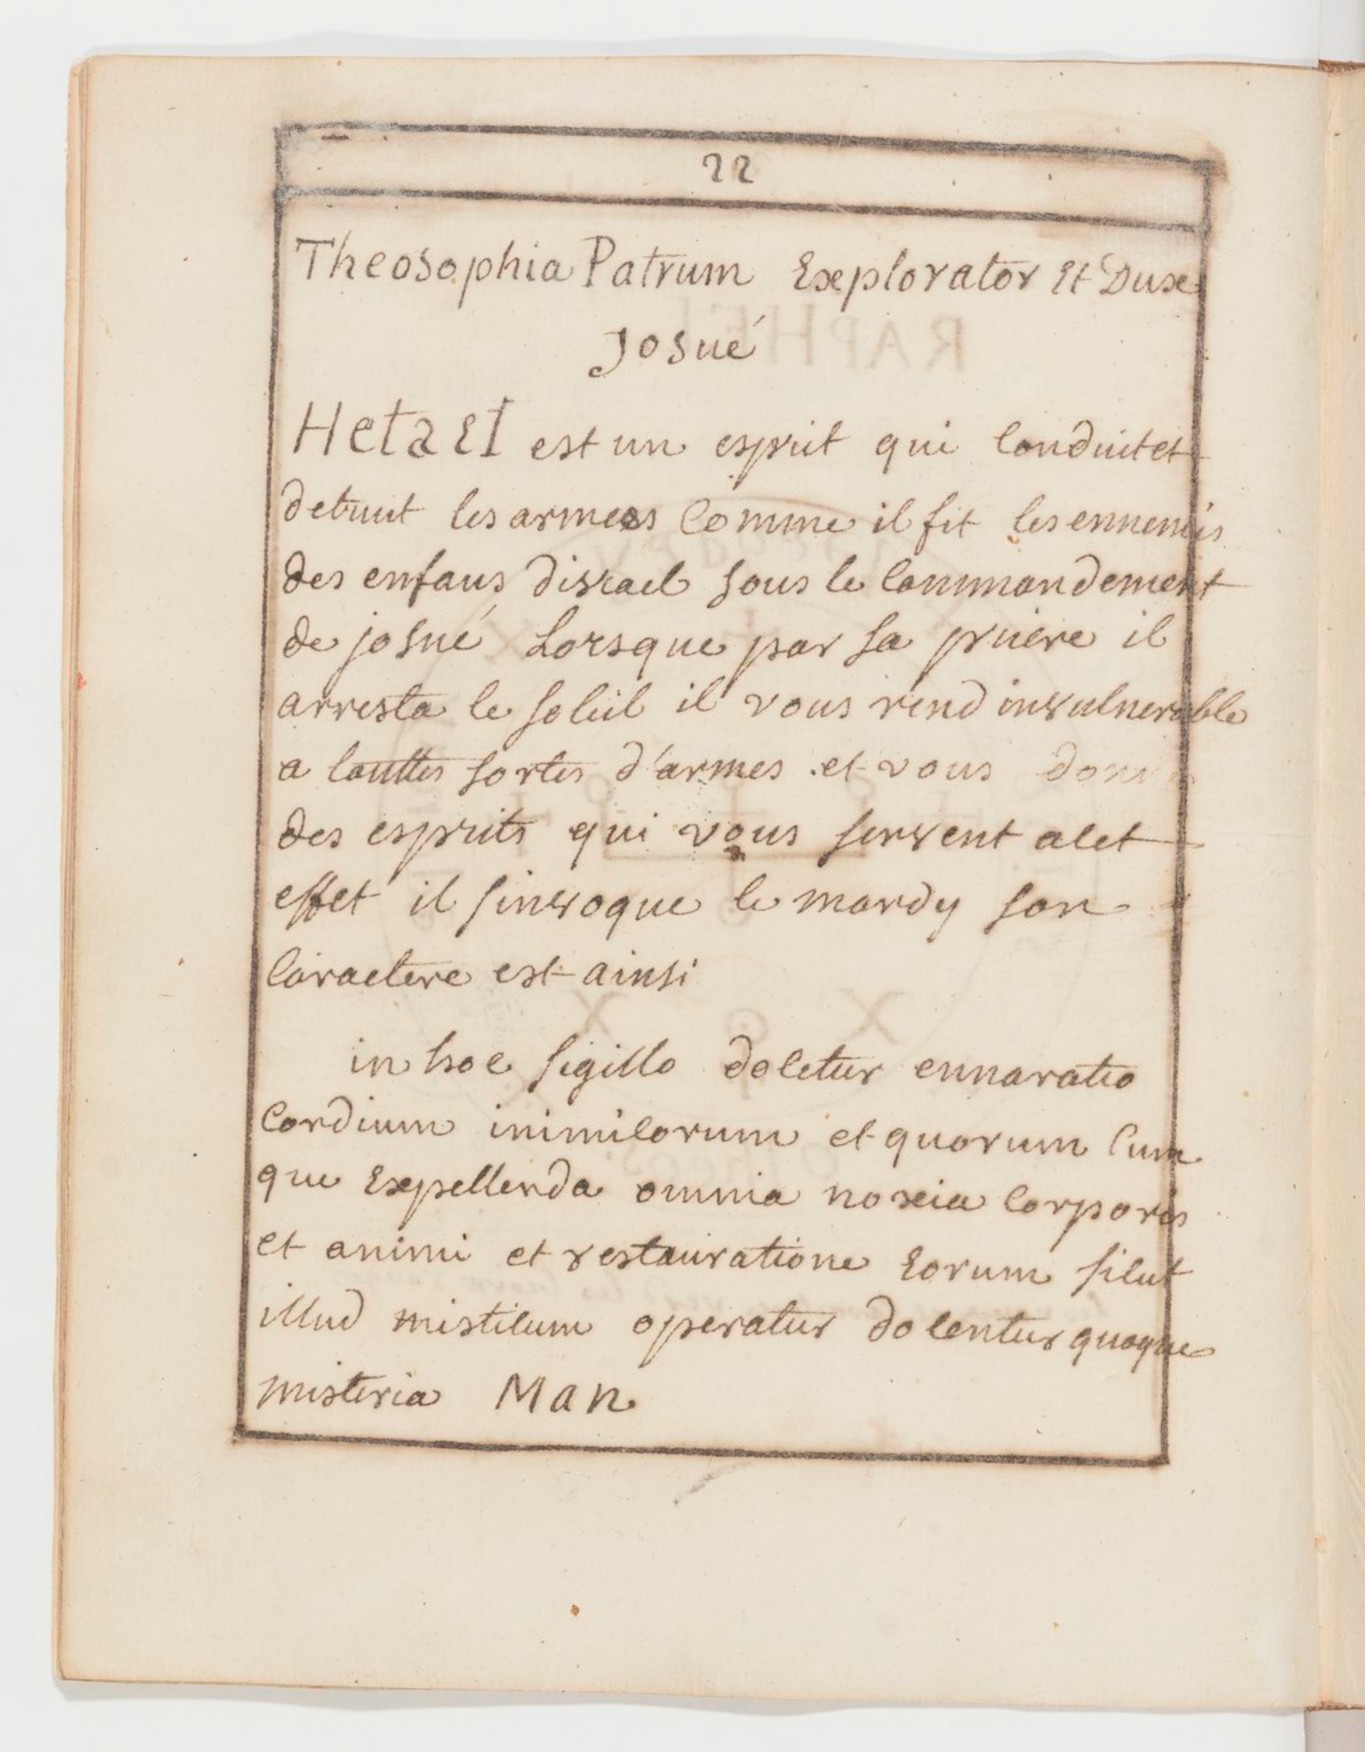 22
Theosophia Patrum Explorator Et Dux
Josué
Hetael est un esprit qui conduit et
detruit les armees comme il fit les ennemis
des enfans disrael sous le commandement
de josué Lorsque par sa priere il
arresta le soleil il vous rend invulnerable
a touttes sortes d'armes et vous
des esprits qui vous servent a cet
effet il sinvoque le mardy son
caractere est ainsi
in hoc sigillo docetur ennaratio
cordium inimicorum et quorum cum
que Expellenda omnia noxia corporis
et animi et restauratione Eorum sicut
illud misticum operatur docentur quoque
misteria Man